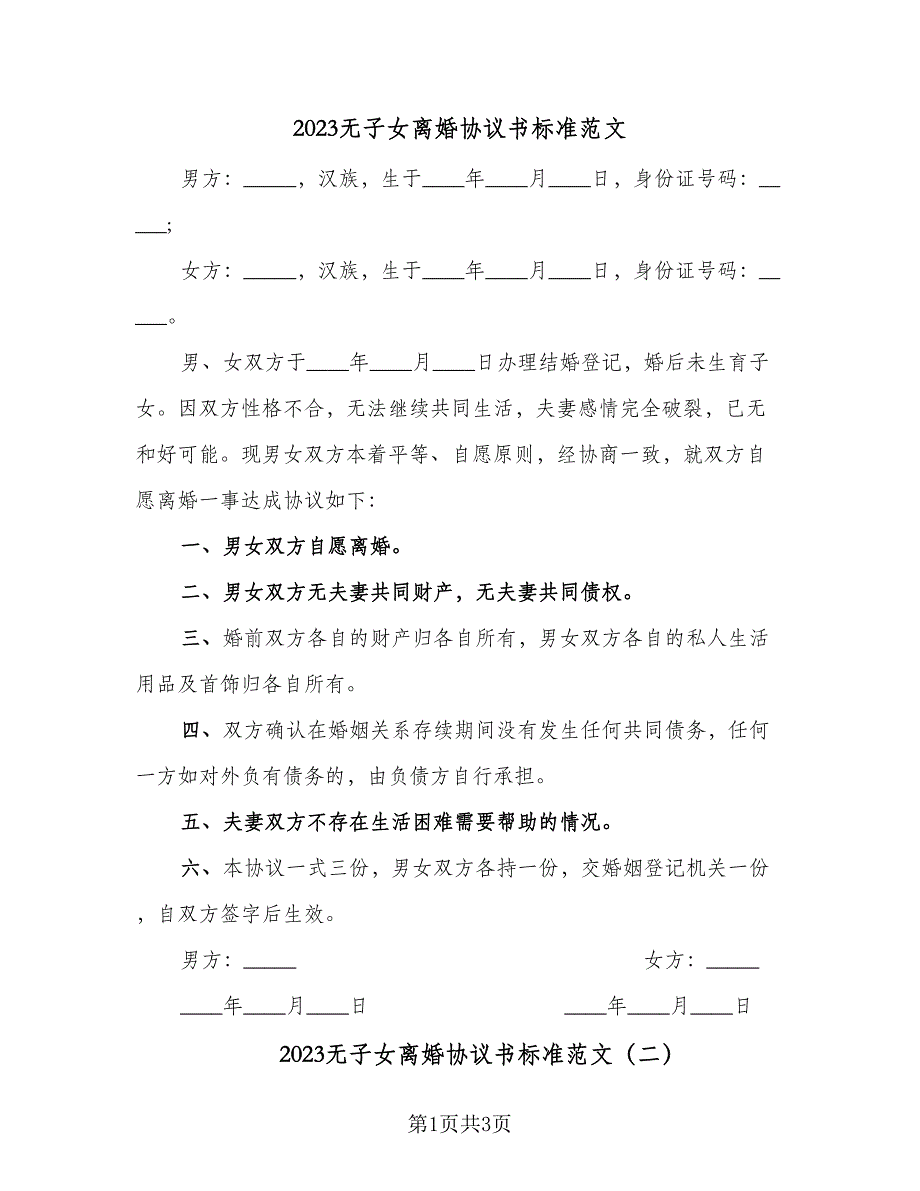 2023无子女离婚协议书标准范文
男方：_____，汉族，生于____年____月____日，身份证号码：__
___;
女方：_____，汉族，生于____年____月____日，身份证号码：__
___。
男、女双方于____年____月____日办理结婚登记，婚后未生育子
女。因双方性格不合，无法继续共同生活，夫妻感情完全破裂，已无
和好可能。现男女双方本着平等、自愿原则，经协商一致，就双方自
愿离婚一事达成协议如下：
一、男女双方自愿离婚。
二、男女双方无夫妻共同财产，无夫妻共同债权。
三、婚前双方各自的财产归各自所有，男女双方各自的私人生活
用品及首饰归各自所有。
四、双方确认在婚姻关系存续期间没有发生任何共同债务，任何
一方如对外负有债务的，由负债方自行承担。
五、夫妻双方不存在生活困难需要帮助的情况。
六、本协议一式三份，男女双方各持一份，交婚姻登记机关一份
，自双方签字后生效。
男方：_____ 女方：_____
____年____月____日 ____年____月____日
2023无子女离婚协议书标准范文（二）
第1页共3页